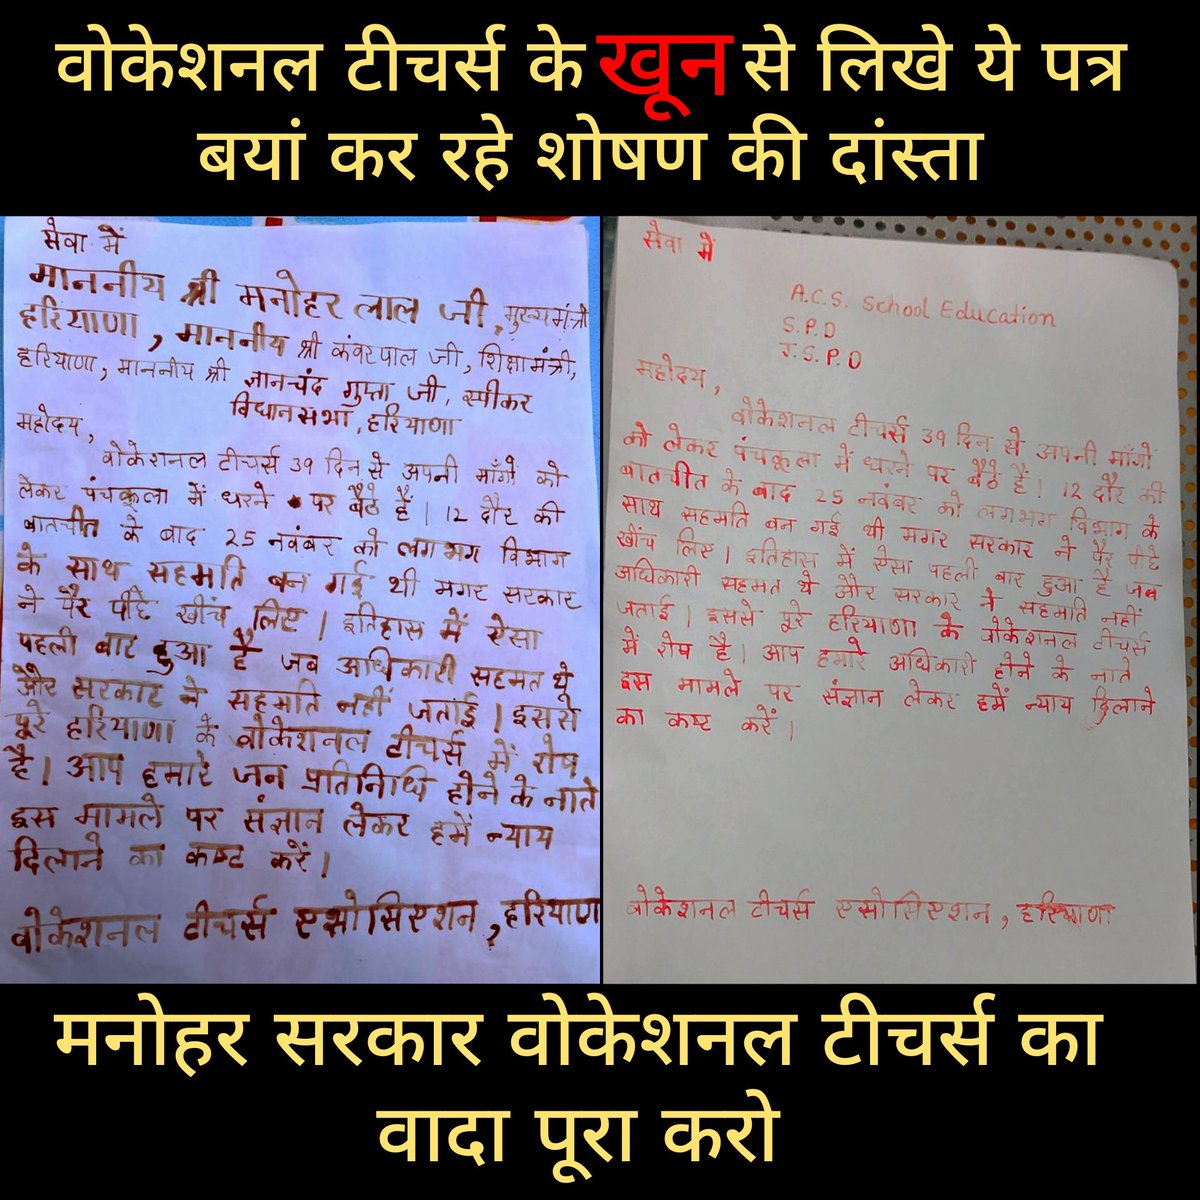 वोकेशनल टीचर्स के खून से लिखे ये पत्र
बयां कर रहे शोषण की दांस्ता
सेवा में
माननीय श्री मनोहर लाल जी, मुख्यमंत्री
हरियाणा, माननीय श्री कंवरपाल जी, शिक्षामंत्री,
हरियाणा, माननीय श्री ज्ञानचंद गुप्ता जी, स्पीकर
विधानसभा, हरियाणा
महोदय,
वोकेशनल टीचर्स 39 दिन से अपनी माँगों को
लेकर पंचकूला में धरने पर बैठे हैं। 12 दौर की
बातचीत के बाद 25 नवंबर को लगभग विभाग
के साथ सहमति बन गई थी मगर सरकार
ने पैर पीछे खींच लिए। इतिहास में ऐसा
पहली बार हुआ है जब अधिकारी सहमत थे
और सरकार ने सहमति नहीं जताई। इससे
पूरे हरियाणा के वोकेशनल टीचर्स में रोष
है। आप हमारे जन प्रतिनिधि होने के नाते
इस मामले पर संज्ञान लेकर हमें न्याय
दिलाने का कष्ट करें।
वोकेशनल टीचर्स एसोसिएशन, हरियाणा
सेवा में
A.C.S. School Education
S.P.D
J.S.P.D
महोदय,
वोकेशनल टीचर्स 39 दिन से अपनी माँगों
को लेकर पंचकूला में धरने पर बैठे हैं। 12 दौर की
बातचीत के बाद 25 नवंबर को लगभग विभाग के
साथ सहमति बन गई थी मगर सरकार ने पैर पीछे
खींच लिए। इतिहास में ऐसा पहली बार हुआ है जब
अधिकारी सहमत थे और सरकार ने सहमति नहीं
जताई। इससे पूरे हरियाणा के वोकेशनल टीचर्स
में रोष है। आप हमारे अधिकारी होने के नाते
इस मामले पर संज्ञान लेकर हमें न्याय दिलाने
का कष्ट करें।
वोकेशनल टीचर्स एसोसिएशन, हरियाणा
मनोहर सरकार वोकेशनल टीचर्स का
वादा पूरा करो